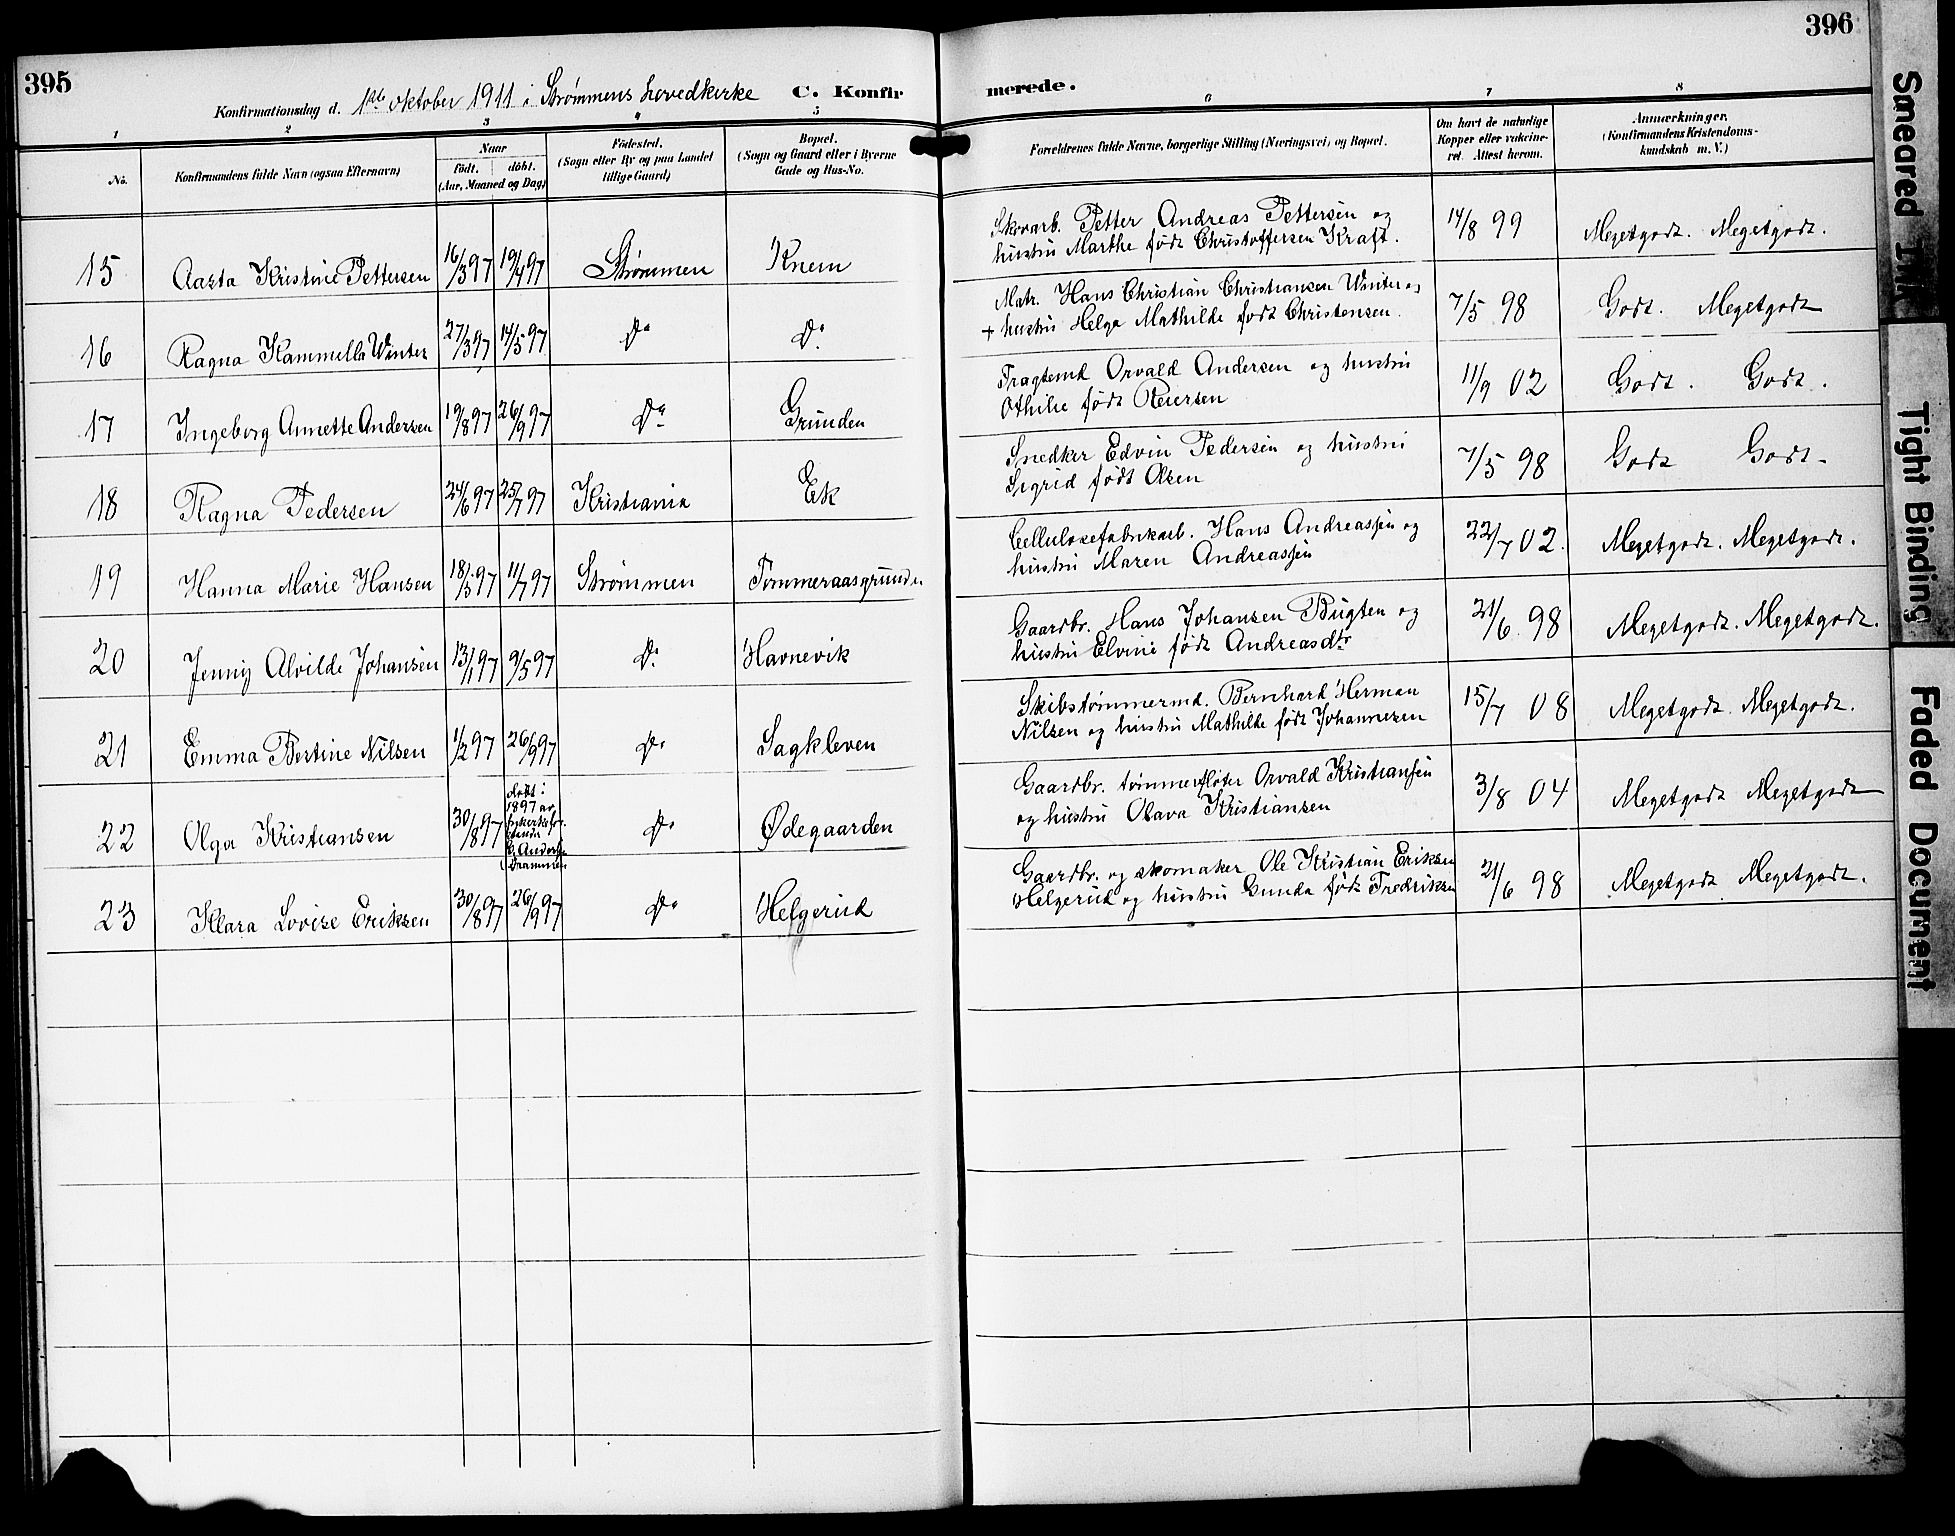 395
396
Konfirmationsdag d. 1ste oktober 1911 i Strømmens hovedkirke C. Konfirmerede.
1 2 3 4 5 6 7 8
No.
Konfirmandens fulde Navn (ogsaa Efternavn)
Naar
født. døbt.
(Aar, Maaned og Dag)
Fødested.
(Sogn eller By og paa Landet
tillige Gaard)
Bopæl.
(Sogn og Gaard eller i Byerne
Gade og Hus-No.
Forældrenes fulde Navne, borgerlige Stilling (Næringsvei) og Bopæl.
Om havt de naturlige
Kopper eller vakcine-
ret. Attest herom.
Anmærkninger,
(Konfirmandens Kristendoms-
kundskab m. V.)
15 Aasta Kristine Pettersen 16/3 97 19/4 97 Strømmen Knem
Skovarb. Petter Andreas Pettersen og
hustru Marthe født Christoffersen Kraft. 14/8 99 Megetgodt. Megetgodt.
16 Ragna Kammilla Winter 27/3 97 14/5 97 Do Do
Matr. Hans Christian Christiansen Winter og
+ hustru Helga Mathilde født Christensen. 7/5 98 Godt. Megetgodt
17 Ingeborg Annette Andersen 19/8 97 26/9 97 Do Grunden
Fragtemd Orvald Andersen og hustru
Othilie født Reiersen 11/9 02 Godt. Godt.
18 Ragna Pedersen 24/6 97 25/7 97 Kristiania Ek
Snedker Edvin Pedersen og hustru
Sigrid født Olsen 7/5 98 Godt Godt
19 Hanna Marie Hansen 18/3 97 11/7 97 Strømmen Tømmeraasgrunden
Cellulosefabrikarb. Hans Andreassen og
hustru Maren Andreassen 22/7 02. Megetgodt. Megetgodt.
20 Jenny Alvilde Johansen 13/1 97 9/5 97 Do Havnevik
Gaardbr. Hans Johansen Bugten og
hustru Elvine født Andreasdtr 21/6 98 Megetgodt. Megetgodt.
21 Emma Bertine Nilsen 1/2 97 26/9 97 Do Sagkleven
Skibstømmermd. Bernhard Herman
Nilsen og hustru Mathilde født Johannesen 15/7 08 Megetgodt. Megetgodt.
22 Olga Kristiansen 30/8 97 døbt i
1897 av
Drammen Do Ødegaarden
Gaardbr. tømmerfløter Orvald Kristiansen
og hustru Olava Kristiansen 3/8 04 Megetgodt Megetgodt
23 Klara Lovise Eriksen 30/8 97 26/9 97 Do Helgerud
Gaardbr. og skomaker Ole Kristian Eriksen
Helgerud og hustru Gunda født Fredriksen 21/6 98 Megetgodt Megetgodt.
Smeared Ink
Tight Binding
Faded Document